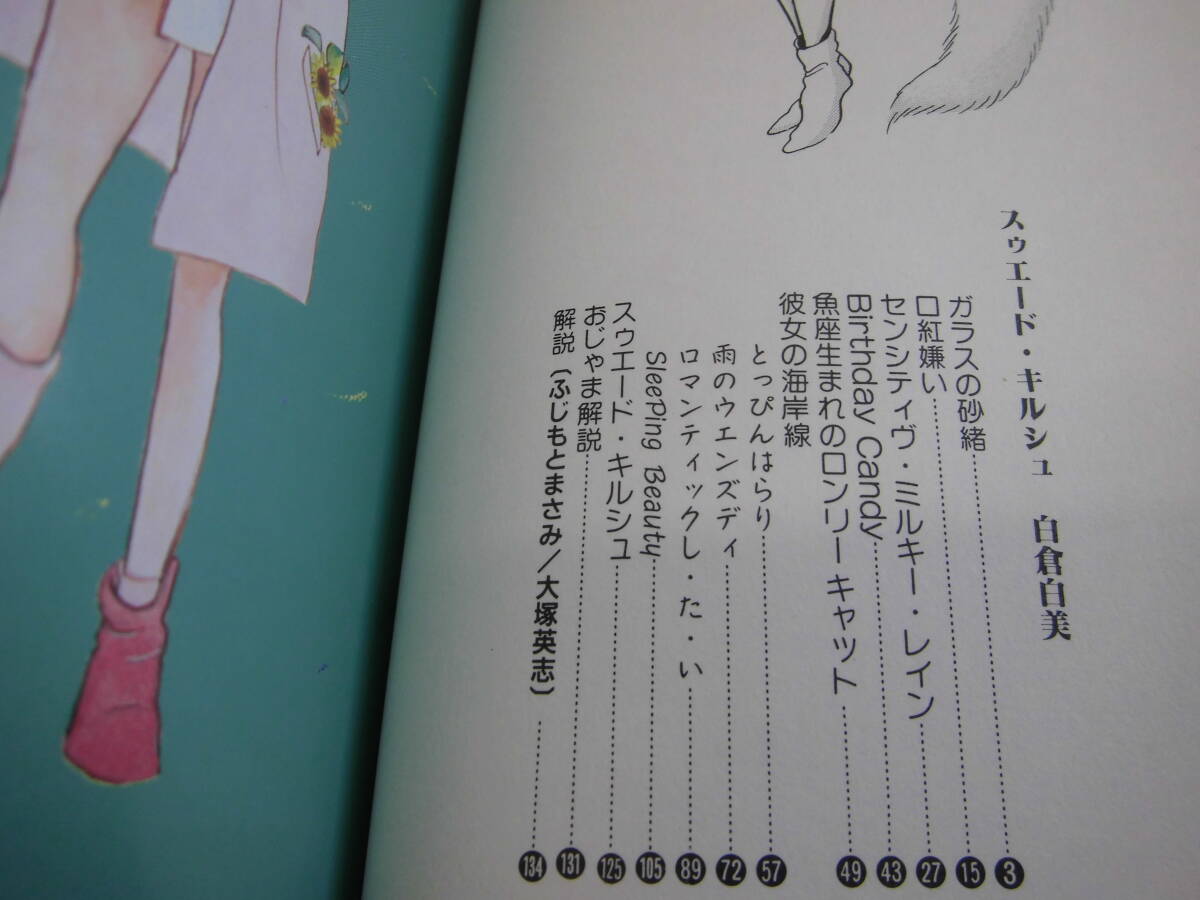 スゥエード・キルシュ 白倉白美
ガラスの砂緒 3
口紅嫌い 15
センシティヴ・ミルキー・レイン 27
Birthday Candy 43
魚座生まれのロンリーキャット 49
彼女の海岸線
とっぴんはらり 57
雨のウエンズディ 72
ロマンティックし・た・い 89
SleePing Beauty 105
スゥエード・キルシュ 125
おじゃま解説 131
解説〔ふじもとまさみ/大塚英志〕 134